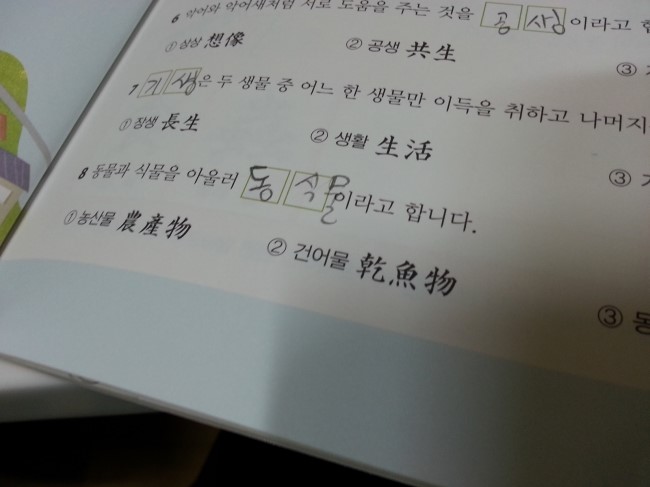 6 악어와 악어새처럼 서로 도움을 주는 것을 공 상 이라고 합
① 상상 想像 ② 공생 共生 ③
7 기 생 은 두 생물 중 어느 한 생물만 이득을 취하고 나머지
① 장생 長生 ② 생활 生活 ③
8 동물과 식물을 아울러 동 식물이라고 합니다.
① 농산물 農產物 ② 건어물 乾魚物 ③ 동